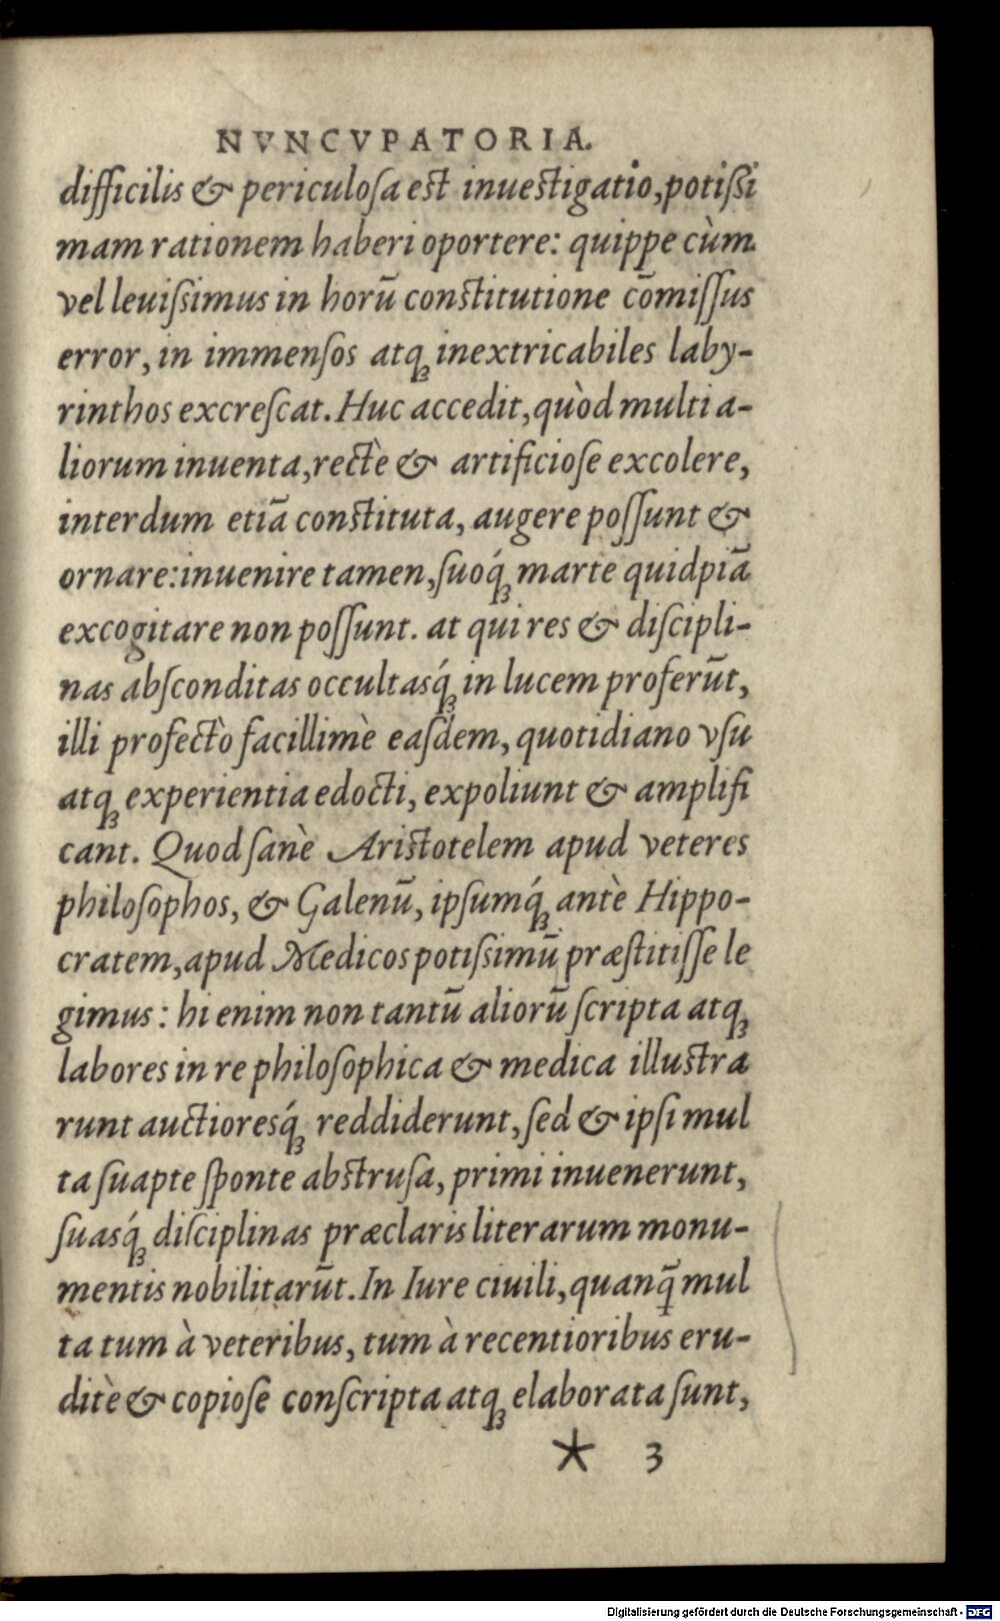 NVNCVPATORIA.
difficilis & periculoſa est inuestigatio, potiſsi
mam rationem haberi oportere: quippe cùm
vel leuiſsimus in horū constitutione cōmiſſus
error, in immenſos atq́ꝫ inextricabiles laby-
rinthos excreſcat. Huc accedit, quòd multi a-
liorum inuenta, rectè & artificioſe excolere,
interdum etiā constituta, augere poſſunt &
ornare: inuenire tamen, ſuoq́ꝫ marte quidpiā
excogitare non poſſunt. at qui res & diſcipli-
nas abſconditas occultasq́ꝫ in lucem proferūt,
illi profectò facillimè eaſdem, quotidiano vſu
atqꝫ experientia edocti, expoliunt & amplifi
cant. Quod ſanè Aristotelem apud veteres
philoſophos, & Galenū, ipſumq́ꝫ antè Hippo-
cratem, apud Medicos potiſsimū præſtitiſſe le
gimus: hi enim non tantū aliorū ſcripta atqꝫ
labores in re philoſophica & medica illustra
runt auctioresq́ꝫ reddiderunt, ſed & ipſi mul
ta ſuapte ſponte abstruſa, primi inuenerunt,
ſuasq́ꝫ diſciplinas præclaris literarum monu-
mentis nobilitarūt. In Iure ciuili, quanq̄ mul
ta tum à veteribus, tum à recentioribus eru-
ditè & copioſe conſcripta atqꝫ elaborata ſunt,
* 3
Digitalisierung gefördert durch die Deutsche Forschungsgemeinschaft - DFG